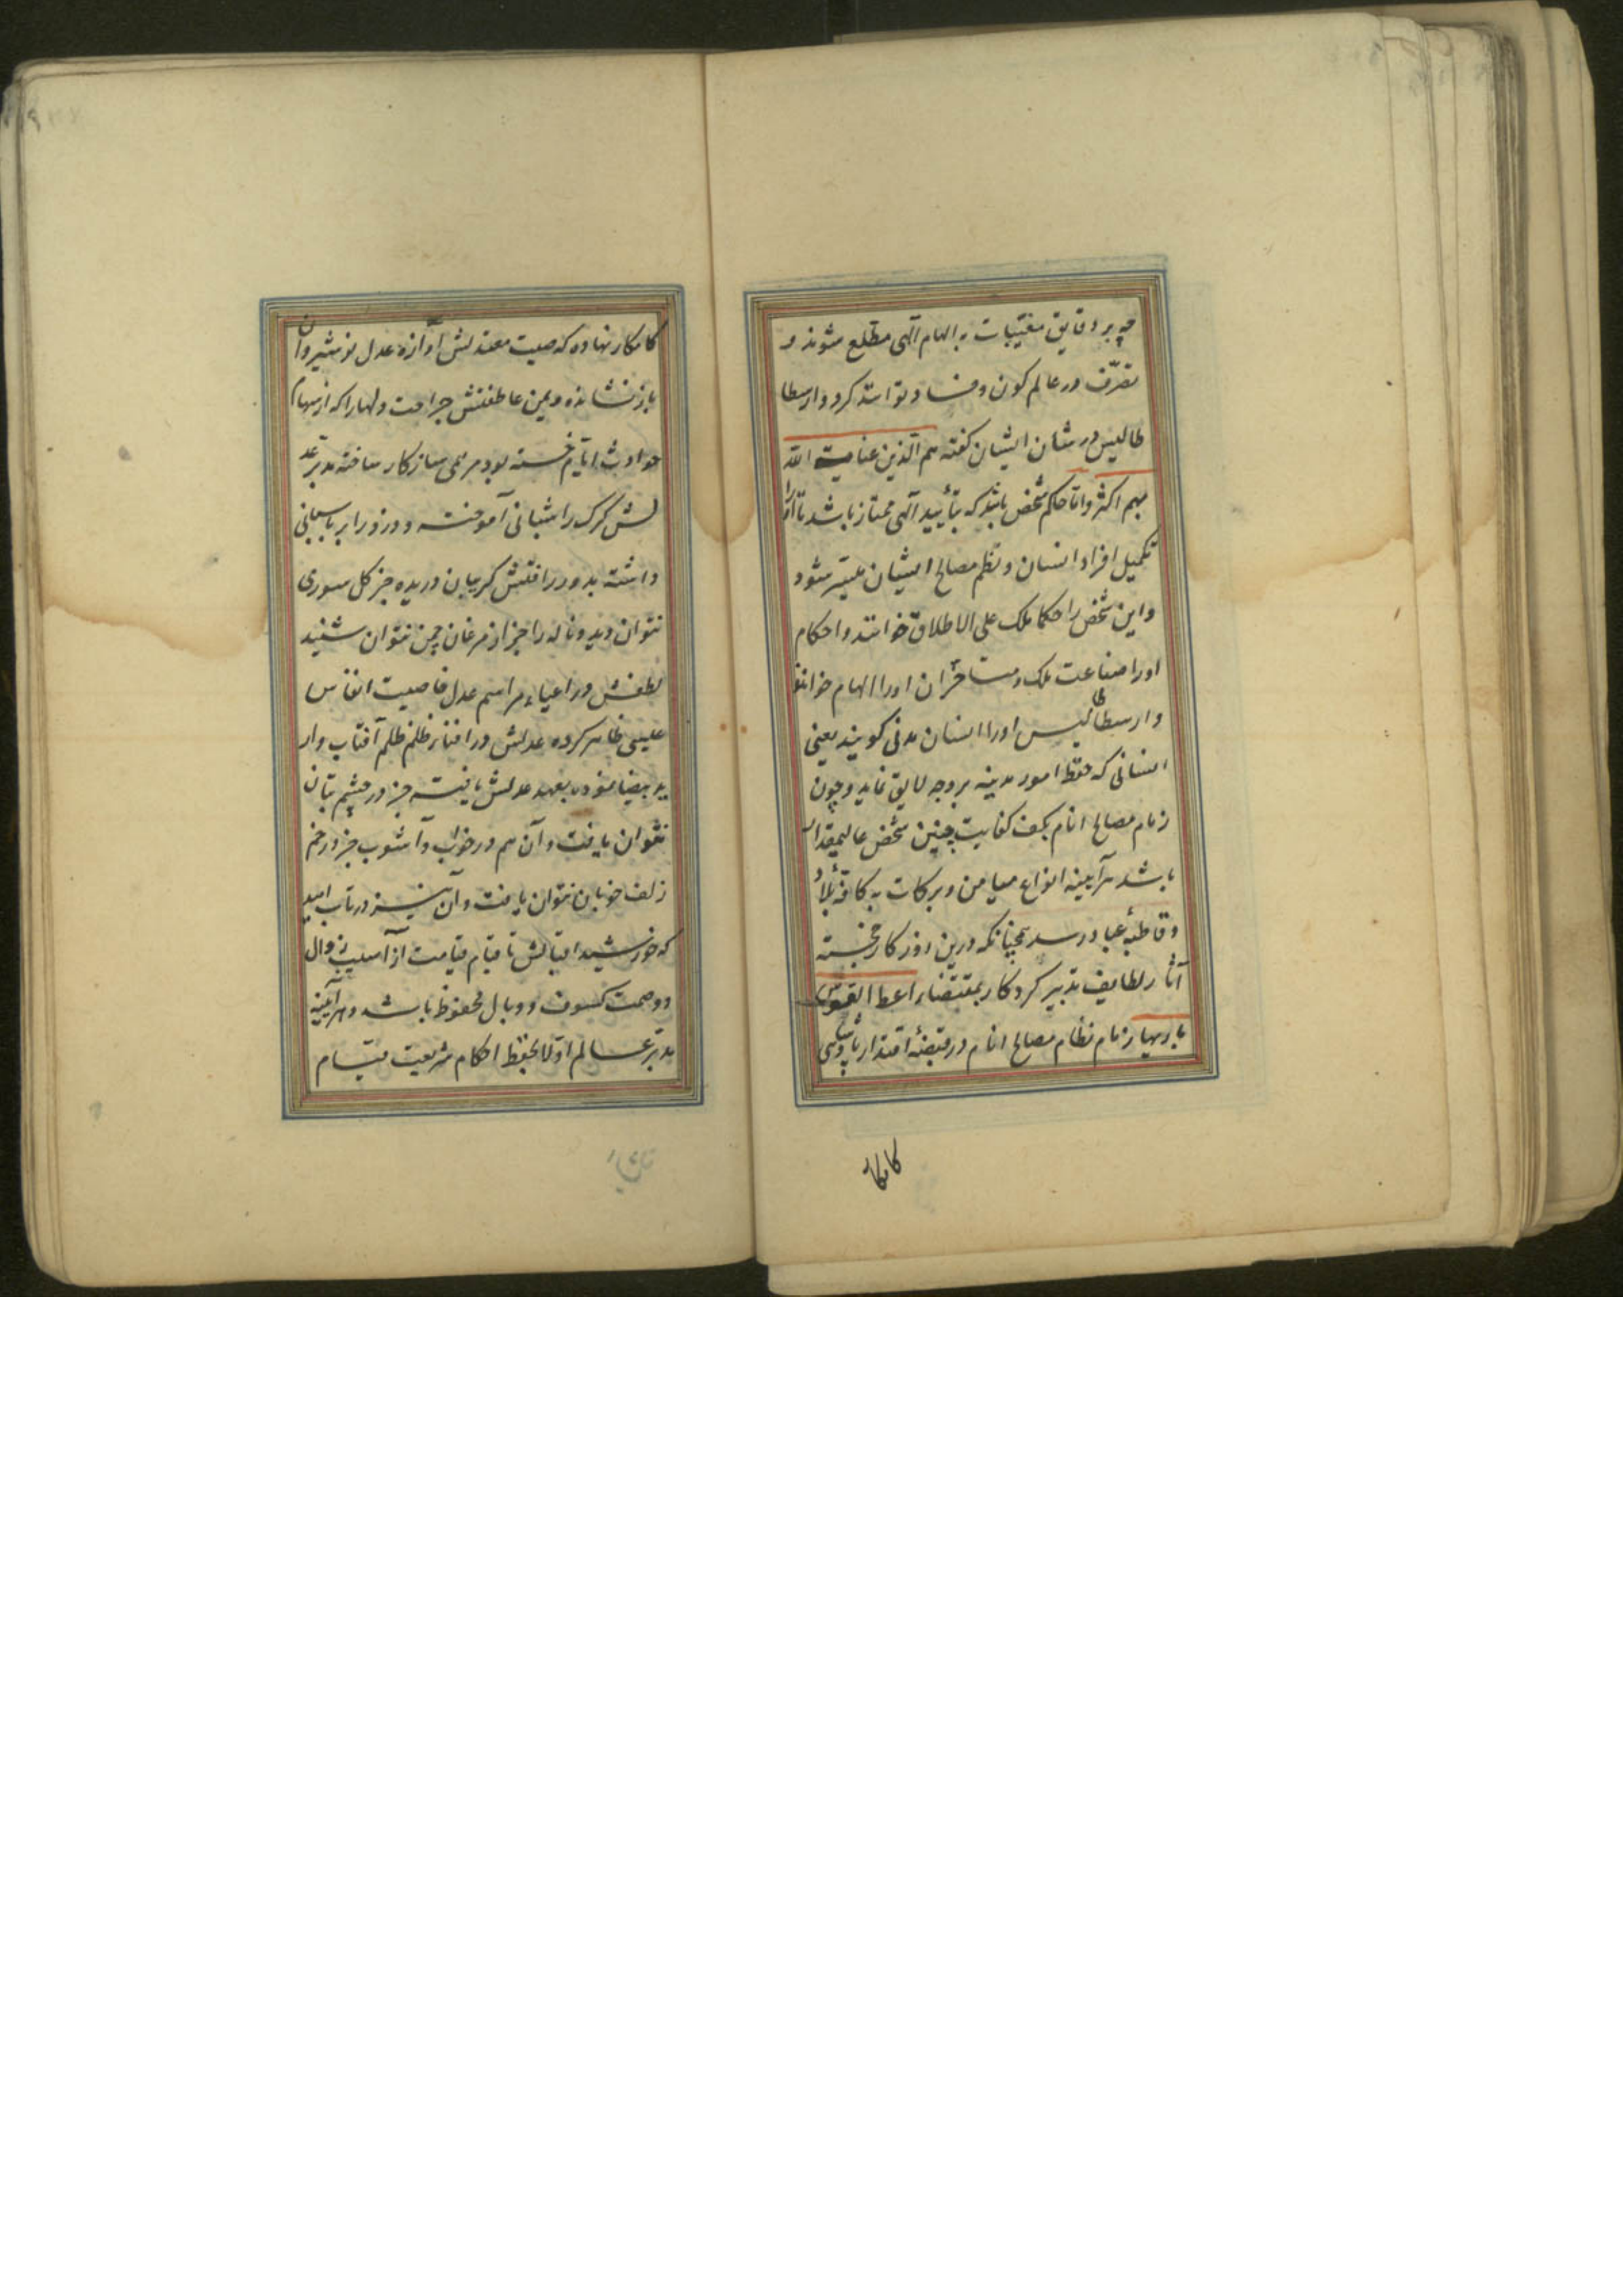 چه بر دقایق مغیبات به الهام آلهی مطلع شوند و
تصرّف در عالم کون و فساد توانند کرد و ارسطا
طالیس در شان ایشان گفته هم الّذین عنایت الله
بهم اکثر و امّا حاکم شخصی باید که بتأیید آلهی ممتاز باشد تا او را
تکمیل افراد انسان و نظم مصالح ایشان میّسر شود
و این شخص را حکما ملک علی الاطلاق خوانند و احکام
او را صناعت ملک و متأخّران او را الهام خوانند
و ارسطاطالیس او را انسان مدنی گویند یعنی
انسانی که حفظ امور مدینه بر وجه لایق نماید و چون
زمام مصالح انام بکف کفایت چنین شخص عالیمقدار
باشد هرآیینه انواع میامن و برکات به کافهٔ بلاد
و قاطبهٔ عباد رسد همچنانکه درین روزکار خجسته
آثار لطایف تدبیر کردکار بمقتضاء اعط القوس
باریها زمام نظام مصالح انام در قبضهٔ اقتدار پادشاهی
کامکار
کامکار نهاده که صیت معدلتش آوازه عدل نوشیروان
باز نشانده و یمن عاطفتش جراحت دلها را که از سهام
حوادث ایّام خسته بود مرهمی سازکار ساخته مدبّر عد
لش کرک را شبانی آموخته و دزد را بر پاسبانی
داشته بدور رافتش کریبان دریده جز کل سوری
نتوان دید و ناله را جز از مرغان چمن نتوان شنید
لطفش در احیاء مراسم عدل خاصیت انفاس
عیسی ظاهر کرده عدلش در افناء ظلم ظلم آفتاب وار
ید بیضا نموده بعهد عدلش فتنه جز در چشم بتان
نتوان یافت و آن هم در خواب و آشوب جز در خم
زلف خوبان نتوان یافت و آن نیز در تاب امید
که خورشید اقبالش تا قیام قیامت از آسیب زوال
و وصمت کسوف و وبال محفوظ باشد و هرآیینه
مدبّر عالم اوّلا بحفظ احکام شریعت قیام